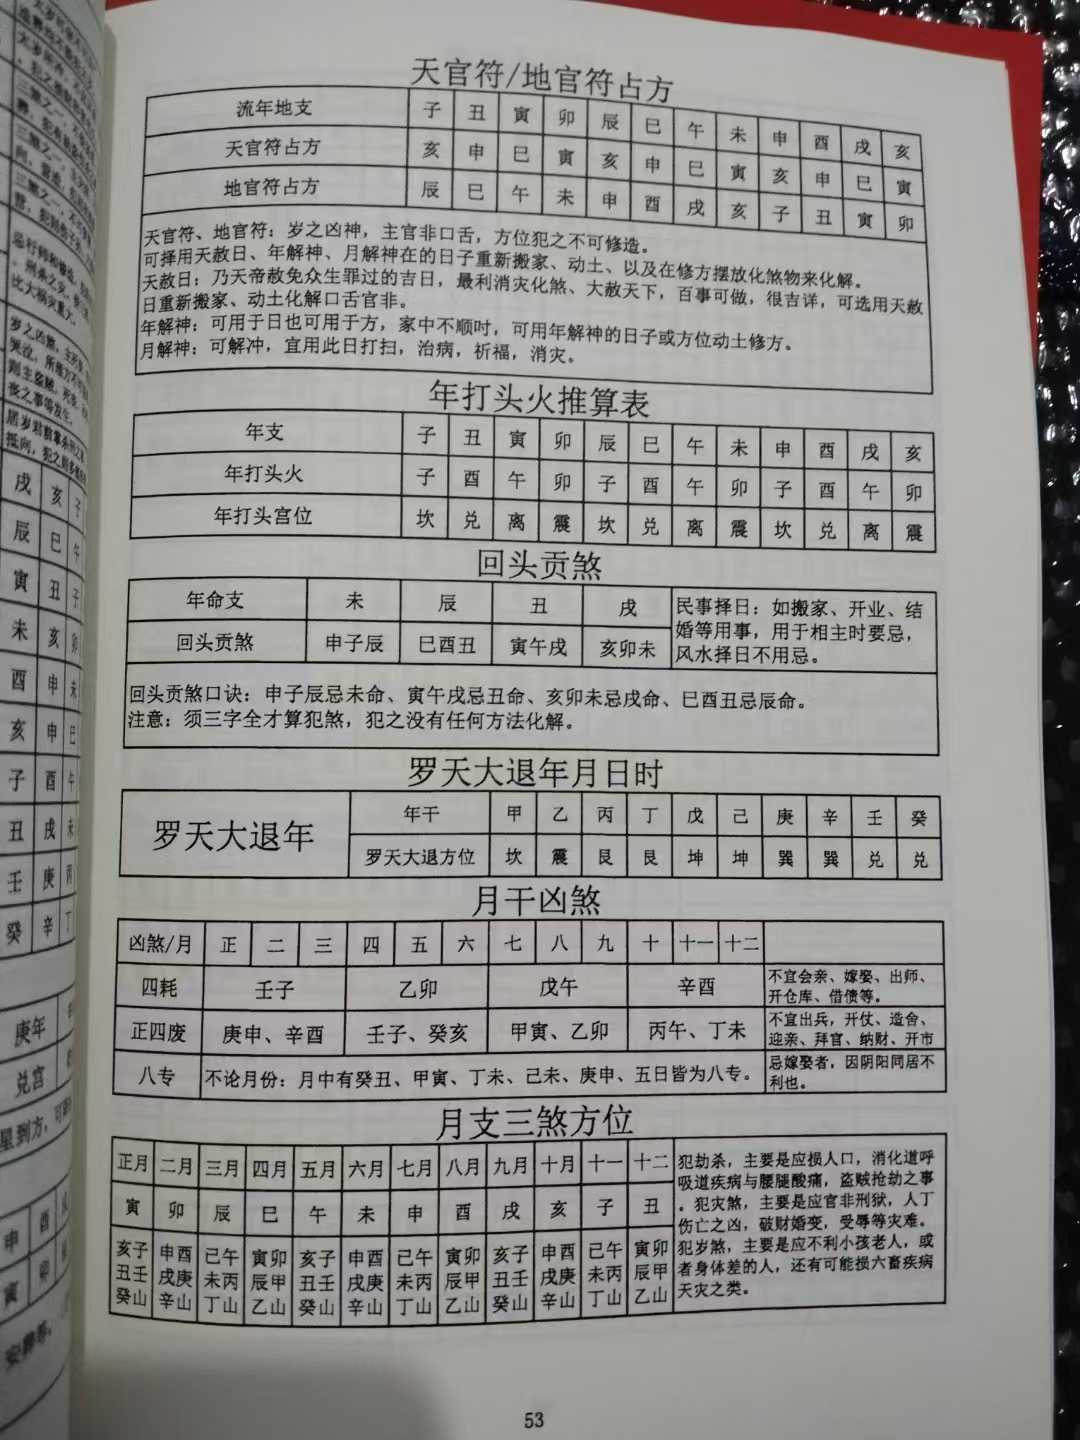 天官符/地官符占方
流年地支 子 丑 寅 卯 辰 巳 午 未 申 酉 戌 亥
天官符占方 亥 申 巳 寅 亥 申 巳 寅 亥 申 巳 寅
地官符占方 辰 巳 午 未 申 酉 戌 亥 子 丑 寅 卯
天官符、地官符：岁之凶神，主官非口舌，方位犯之不可修造。
可择用天赦日、年解神、月解神在的日子重新搬家、动土、以及在修方摆放化煞物来化解。
天赦日：乃天帝赦免众生罪过的吉日，最利消灾化煞、大赦天下，百事可做，很吉详，可选用天赦
日重新搬家、动土化解口舌官非。
年解神：可用于日也可用于方，家中不顺时，可用年解神的日子或方位动土修方。
月解神：可解冲，宜用此日打扫，治病，祈福，消灾。
年打头火推算表
年支 子 丑 寅 卯 辰 巳 午 未 申 酉 戌 亥
年打头火 子 酉 午 卯 子 酉 午 卯 子 酉 午 卯
年打头宫位 坎 兑 离 震 坎 兑 离 震 坎 兑 离 震
回头贡煞
年命支 未 辰 丑 戌
回头贡煞 申子辰 巳酉丑 寅午戌 亥卯未
民事择日：如搬家、开业、结
婚等用事，用于相主时要忌，
风水择日不用忌。
回头贡煞口诀：申子辰忌未命、寅午戌忌丑命、亥卯未忌戌命、巳酉丑忌辰命。
注意：须三字全才算犯煞，犯之没有任何方法化解。
罗天大退年月日时
罗天大退年
年干 甲 乙 丙 丁 戊 己 庚 辛 壬 癸
罗天大退方位 坎 震 艮 艮 坤 坤 巽 巽 兑 兑
月干凶煞
凶煞/月 正 二 三 四 五 六 七 八 九 十 十一 十二
四耗 壬子 乙卯 戊午 辛酉
不宜会亲、嫁娶、出师、
开仓库、借债等。
正四废 庚申、辛酉 壬子、癸亥 甲寅、乙卯 丙午、丁未
不宜出兵，开仗、造舍、
迎亲、拜官、纳财、开市
八专 不论月份：月中有癸丑、甲寅、丁未、己未、庚申、五日皆为八专。
忌嫁娶者，因阴阳同居不
利也。
月支三煞方位
正月 二月 三月 四月 五月 六月 七月 八月 九月 十月 十一 十二
寅 卯 辰 巳 午 未 申 酉 戌 亥 子 丑
亥子 申酉 己午 寅卯 亥子 申酉 己午 寅卯 亥子 申酉 己午 寅卯
丑壬 戌庚 未丙 辰甲 丑壬 戌庚 未丙 辰甲 丑壬 戌庚 未丙 辰甲
癸山 辛山 丁山 乙山 癸山 辛山 丁山 乙山 癸山 辛山 丁山 乙山
犯劫杀，主要是应损人口，消化道呼
吸道疾病与腰腿酸痛，盗贼抢劫之事
。犯灾煞，主要是应官非刑狱，人丁
伤亡之凶，破财婚变，受辱等灾难。
犯岁煞，主要是应不利小孩老人，或
者身体差的人，还有可能损六畜疾病
天灾之类。
53
戌 亥 子
辰 巳 午
寅 丑 子
未 亥 卯
酉 申 未
亥 申 巳
子 酉 午
丑 戌 未
壬 庚 丙
癸 辛 丁
庚年
兑宫
星到方，可
申 酉
寅 卯